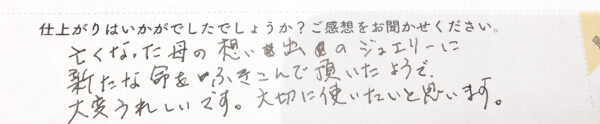 仕上がりはいかがでしたでしょうか？ご感想をお聞かせください。
亡くなった母の想い出のジュエリーに
新たな命をふきこんで頂いたようで、
大変うれしいです。大切に使いたいと思います。